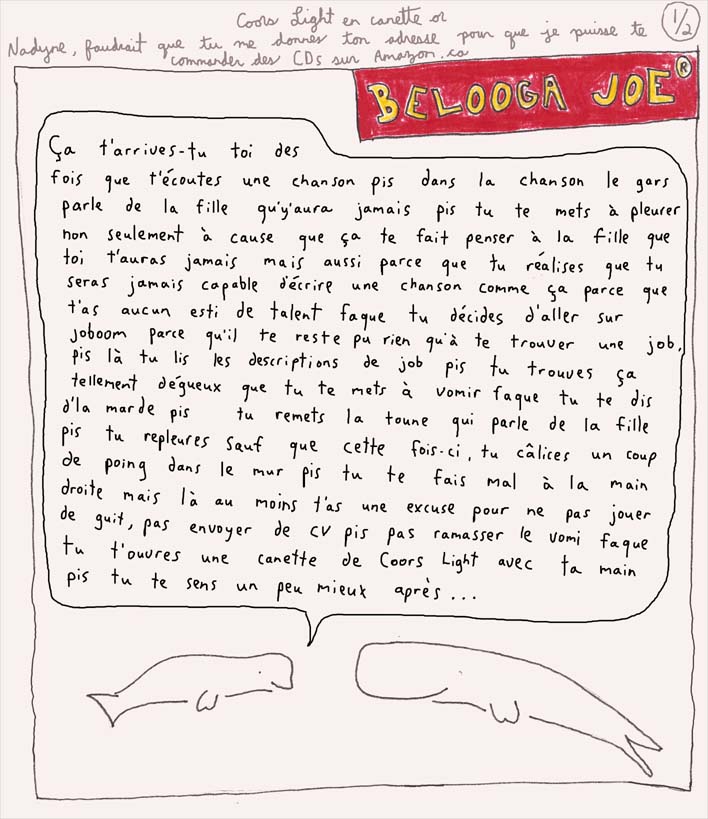 Coors Light en canette or
Nadyne, faudrait que tu me donnes ton adresse pour que je puisse te
commander des CDs sur Amazon.ca
1/2
BELOOGA JOE ®
Ça t'arrives-tu toi des
fois que t'écoutes une chanson pis dans la chanson le gars
parle de la fille qu'y'aura jamais pis tu te mets à pleurer
non seulement à cause que ça te fait penser à la fille que
toi t'auras jamais mais aussi parce que tu réalises que tu
seras jamais capable d'écrire une chanson comme ça parce que
t'as aucun esti de talent faque tu décides d'aller sur
joboom parce qu'il te reste pu rien qu'à te trouver une job,
pis là tu lis les descriptions de job pis tu trouves ça
tellement dégueux que tu te mets à vomir faque tu te dis
d'la marde pis tu remets la toune qui parle de la fille
pis tu repleures sauf que cette fois-ci, tu câlices un coup
de poing dans le mur pis tu te fais mal à la main
droite mais là au moins t'as une excuse pour ne pas jouer
de guit, pas envoyer de CV pis pas ramasser le vomi faque
tu t'ouvres une canette de Coors Light avec ta main
pis tu te sens un peu mieux après...